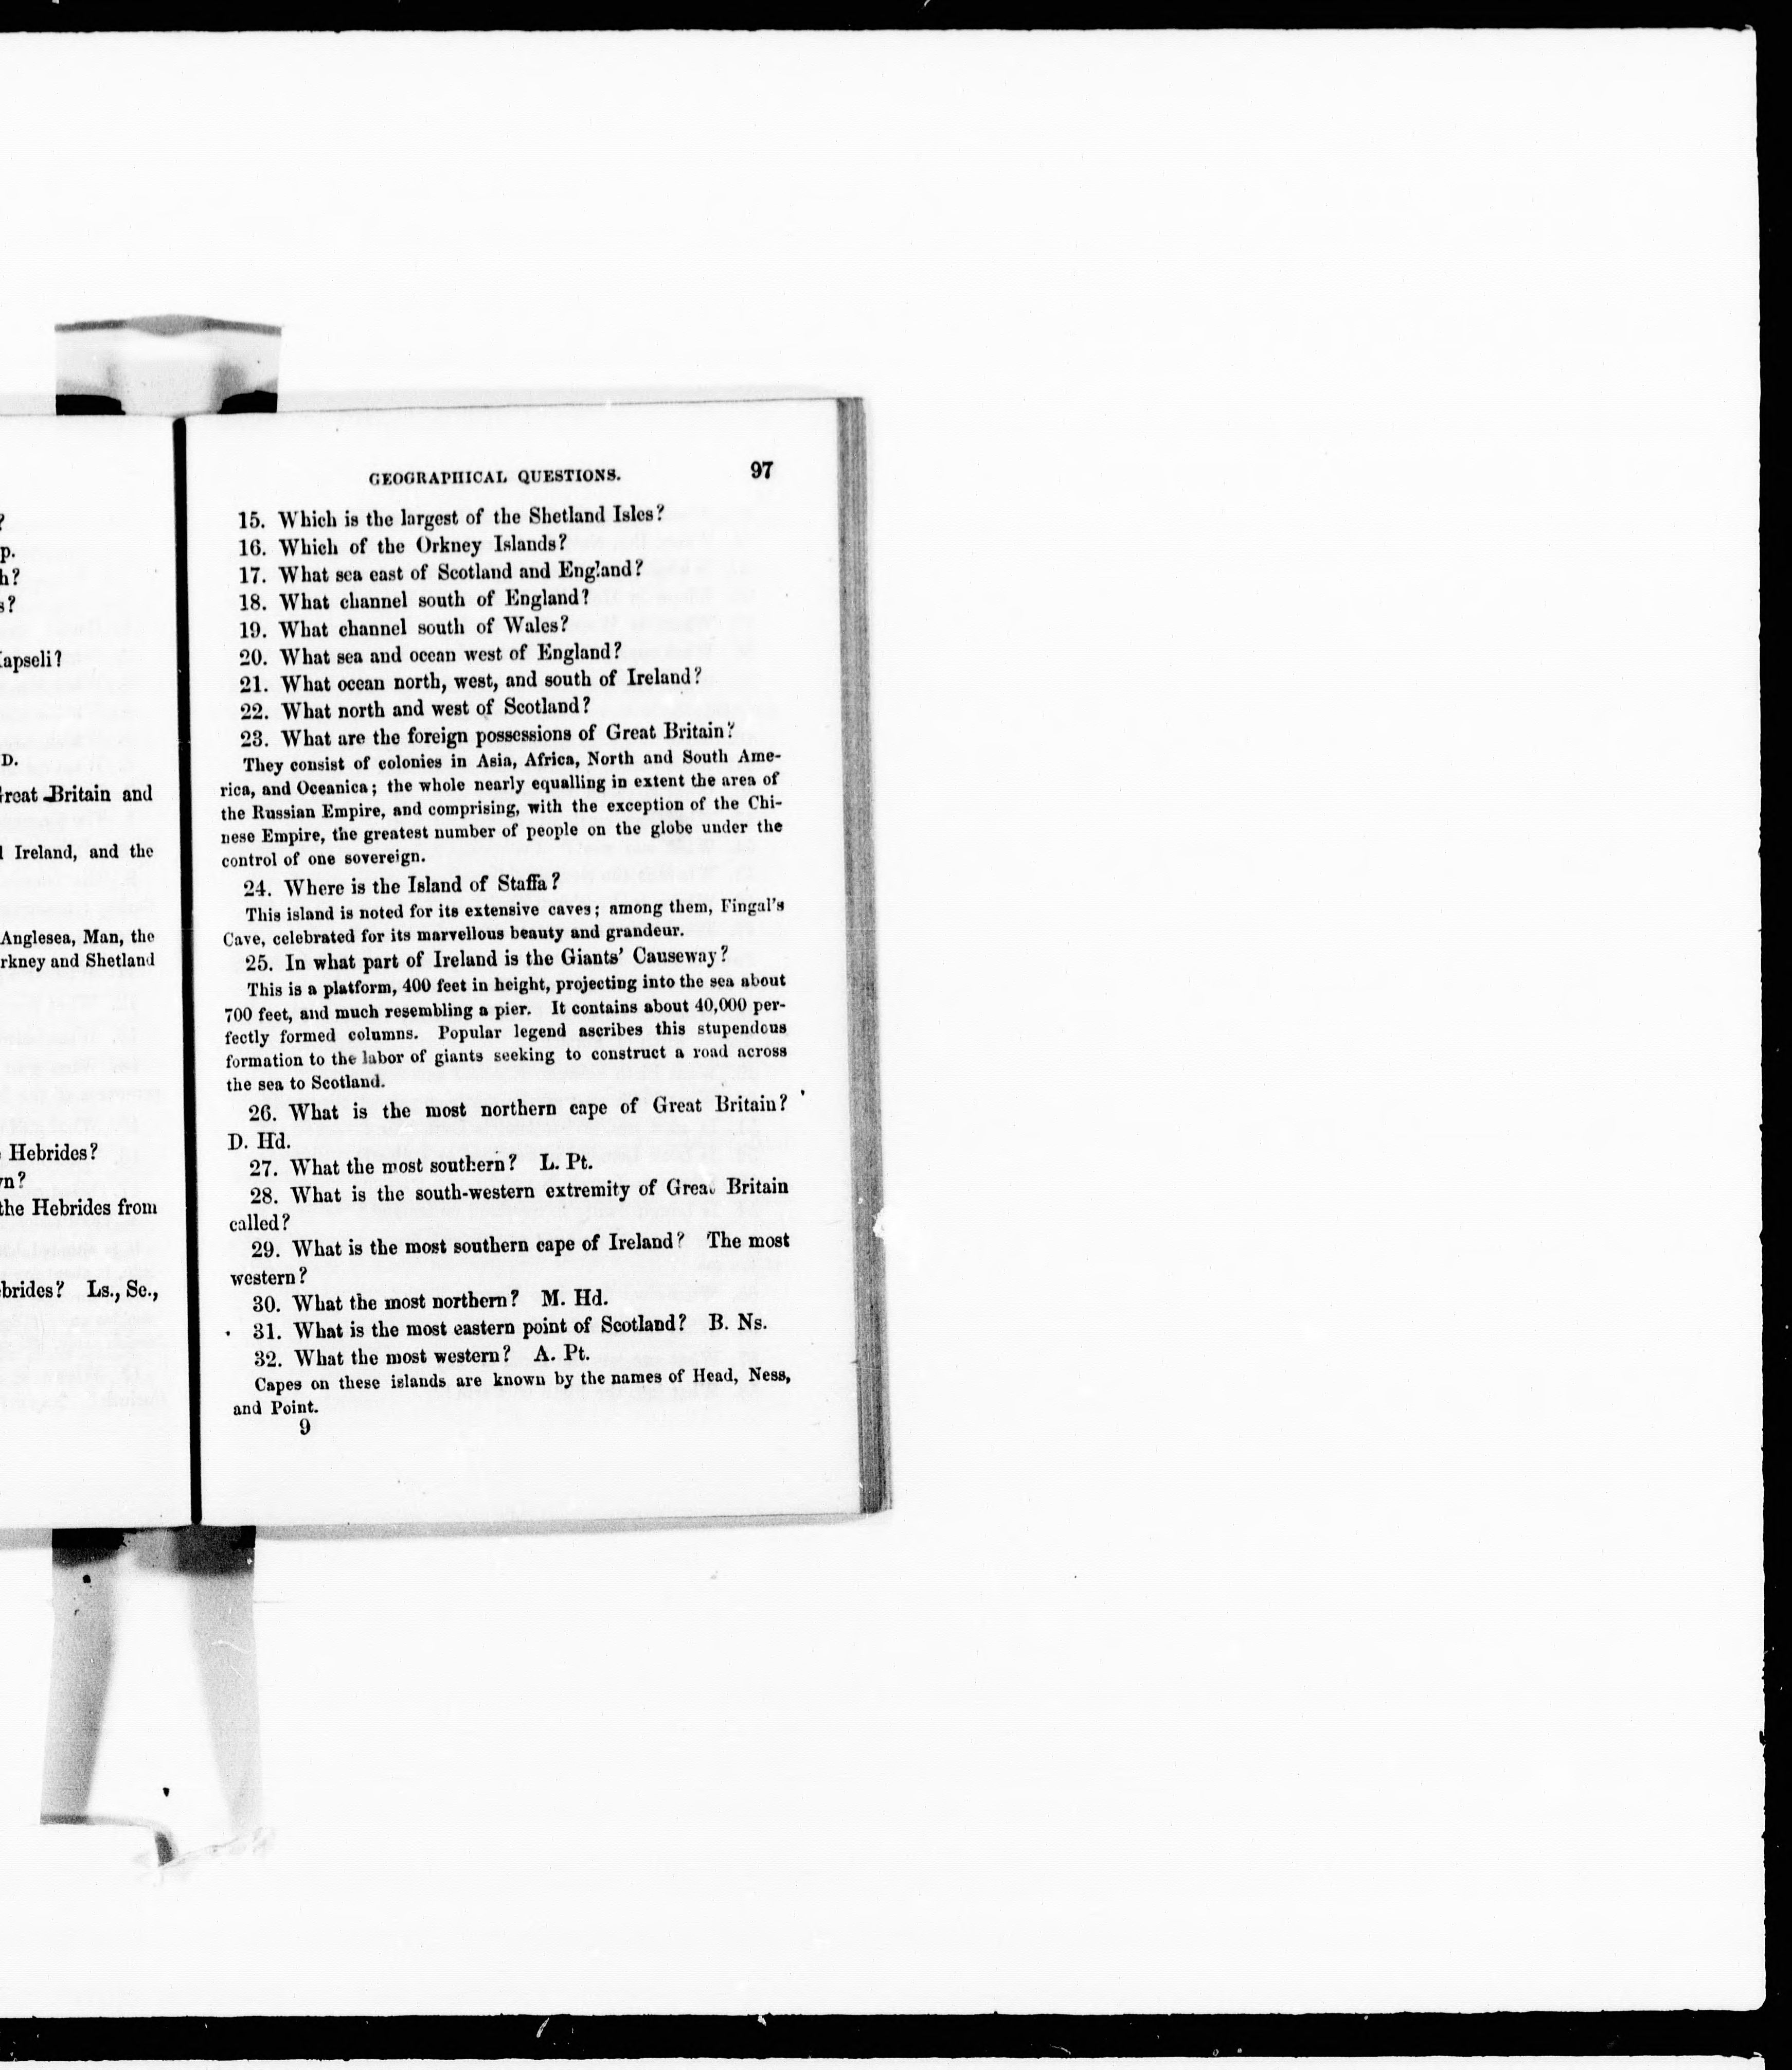 ?
p.
h?
s?
apseli?
D.
reat Britain and
Ireland, and the
Anglesea, Man, the
rkney and Shetland
Hebrides?
n?
the Hebrides from
brides? Ls., Se.,
GEOGRAPHICAL QUESTIONS. 97
15. Which is the largest of the Shetland Isles?
16. Which of the Orkney Islands?
17. What sea east of Scotland and England?
18. What channel south of England?
19. What channel south of Wales?
20. What sea and ocean west of England?
21. What ocean north, west, and south of Ireland?
22. What north and west of Scotland?
23. What are the foreign possessions of Great Britain?
They consist of colonies in Asia, Africa, North and South Ame-
rica, and Oceanica; the whole nearly equalling in extent the area of
the Russian Empire, and comprising, with the exception of the Chi-
nese Empire, the greatest number of people on the globe under the
control of one sovereign.
24. Where is the Island of Staffa?
This island is noted for its extensive caves; among them, Fingal's
Cave, celebrated for its marvellous beauty and grandeur.
25. In what part of Ireland is the Giants' Causeway?
This is a platform, 400 feet in height, projecting into the sea about
700 feet, and much resembling a pier. It contains about 40,000 per-
fectly formed columns. Popular legend ascribes this stupendous
formation to the labor of giants seeking to construct a road across
the sea to Scotland.
26. What is the most northern cape of Great Britain?
D. Hd.
27. What the most southern? L. Pt.
28. What is the south-western extremity of Great Britain
called?
29. What is the most southern cape of Ireland? The most
western?
30. What the most northern? M. Hd.
31. What is the most eastern point of Scotland? B. Ns.
32. What the most western? A. Pt.
Capes on these islands are known by the names of Head, Ness,
and Point.
9